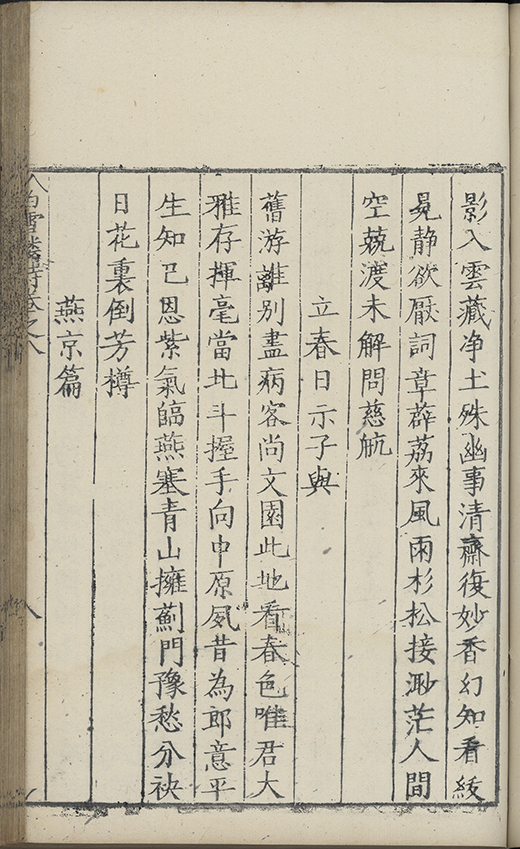 影入雲藏净土殊幽事清齋復妙香幻知看綾
晃静欲厭詞章薜荔來風雨杉松接渺茫人間
空競渡未解問慈航
立春日示子與
舊游離別盡病客尚文園此地看春色唯君大
雅存揮毫當北斗握手向中原夙昔為郎意平
生知已恩紫氣臨燕塞青山擁薊門豫愁分袂
日花裏倒芳樽
燕京篇
白雪樓詩卷之八